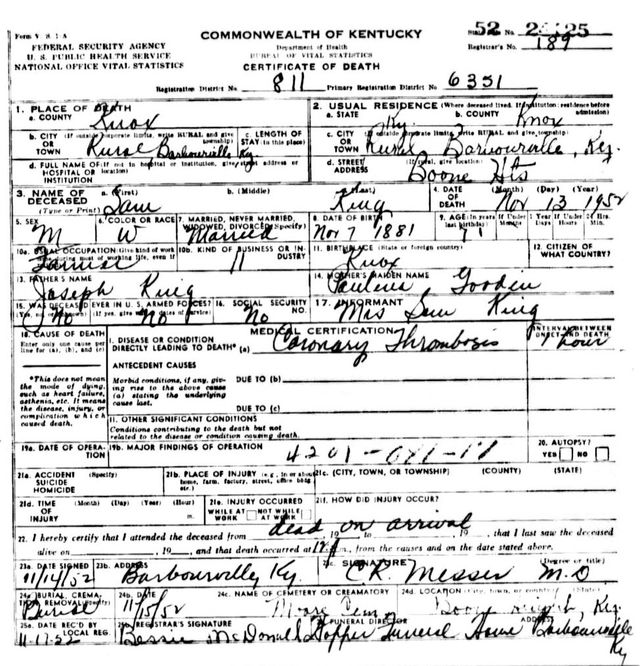 Form V S 1-A
COMMONWEALTH OF KENTUCKY
FEDERAL SECURITY AGENCY
U. S. PUBLIC HEALTH SERVICE
NATIONAL OFFICE VITAL STATISTICS
Department of Health
BUREAU OF VITAL STATISTICS
CERTIFICATE OF DEATH
52
Registrar's No. 189
Registration District No. 811 Primary Registration District No. 6351
1. PLACE OF DEATH
a. COUNTY Knox
2. USUAL RESIDENCE (Where deceased lived. If institution: residence before admission)
a. STATE Ky. b. COUNTY Knox
b. CITY (If outside corporate limits, write RURAL and give township)
OR TOWN Rural Barbourville Ky.
c. LENGTH OF STAY (In this place)
c. CITY (If outside corporate limits, write RURAL and give township)
OR TOWN Rural Barbourville, Ky.
d. FULL NAME OF (If not in hospital or institution, give street address or location)
HOSPITAL OR INSTITUTION
d. STREET ADDRESS (If rural, give location)
Boone Hts
3. NAME OF DECEASED (Type or Print)
a. (First) Sam b. (Middle) c. (Last) King
4. DATE OF DEATH (Month) (Day) (Year)
Nov 13 1952
5. SEX M
6. COLOR OR RACE W
7. MARRIED, NEVER MARRIED, WIDOWED, DIVORCED (Specify) Married
8. DATE OF BIRTH Nov 7 1881
9. AGE (In years last birthday) 71 If Under 1 Year If Under 24 Hrs.
10a. USUAL OCCUPATION (Give kind of work done during most of working life, even if retired) Farmer
10b. KIND OF BUSINESS OR INDUSTRY 11
11. BIRTHPLACE (State or foreign country) Knox
12. CITIZEN OF WHAT COUNTRY?
13. FATHER'S NAME Joseph King
14. MOTHER'S MAIDEN NAME Paulina Goodin
15. WAS DECEASED EVER IN U. S. ARMED FORCES?
(Yes, no, or unknown) (If yes, give war or dates of service) No No
16. SOCIAL SECURITY NO. No
17. INFORMANT Mrs Sam King
18. CAUSE OF DEATH
Enter only one cause per line for (a), (b), and (c)
MEDICAL CERTIFICATION
INTERVAL BETWEEN ONSET AND DEATH
I. DISEASE OR CONDITION
DIRECTLY LEADING TO DEATH* (a) Coronary Thrombosis 1 hour
ANTECEDENT CAUSES
*This does not mean the mode of dying, such as heart failure, asthenia, etc. It means the disease, injury, or complication which caused death.
Morbid conditions, if any, giving rise to the above cause (a) stating the underlying cause last.
DUE TO (b)
DUE TO (c)
II. OTHER SIGNIFICANT CONDITIONS
Conditions contributing to the death but not related to the disease or condition causing death.
19a. DATE OF OPERATION
19b. MAJOR FINDINGS OF OPERATION
20. AUTOPSY?
YES NO
21a. ACCIDENT SUICIDE HOMICIDE (Specify)
21b. PLACE OF INJURY (e.g., in or about home, farm, factory, street, office bldg etc.)
21c. (CITY, TOWN, OR TOWNSHIP) (COUNTY) (STATE)
21d. TIME OF INJURY (Month) (Day) (Year) (Hour)
21e. INJURY OCCURRED
WHILE AT WORK NOT WHILE AT WORK
21f. HOW DID INJURY OCCUR?
dead on arrival
22. I hereby certify that I attended the deceased from , 19 , to , 19 , that I last saw the deceased
alive on , 19 , and that death occurred at m., from the causes and on the date stated above.
23a. DATE SIGNED 11/14/52
23b. ADDRESS Barbourville, Ky
23c. SIGNATURE (Degree or title)
C.R. Messer M.D
24a. BURIAL, CREMATION, REMOVAL (Specify) Burial
24b. DATE 11/15/52
24c. NAME OF CEMETERY OR CREMATORY Moore Cem
24d. LOCATION (City, town, or county) (State)
Boone Ky.
25a. DATE REC'D BY LOCAL REG. 11-17-52
25b. REGISTRAR'S SIGNATURE Bessie McDonald
FUNERAL DIRECTOR ADDRESS
Hopper Funeral Home Barbourville Ky